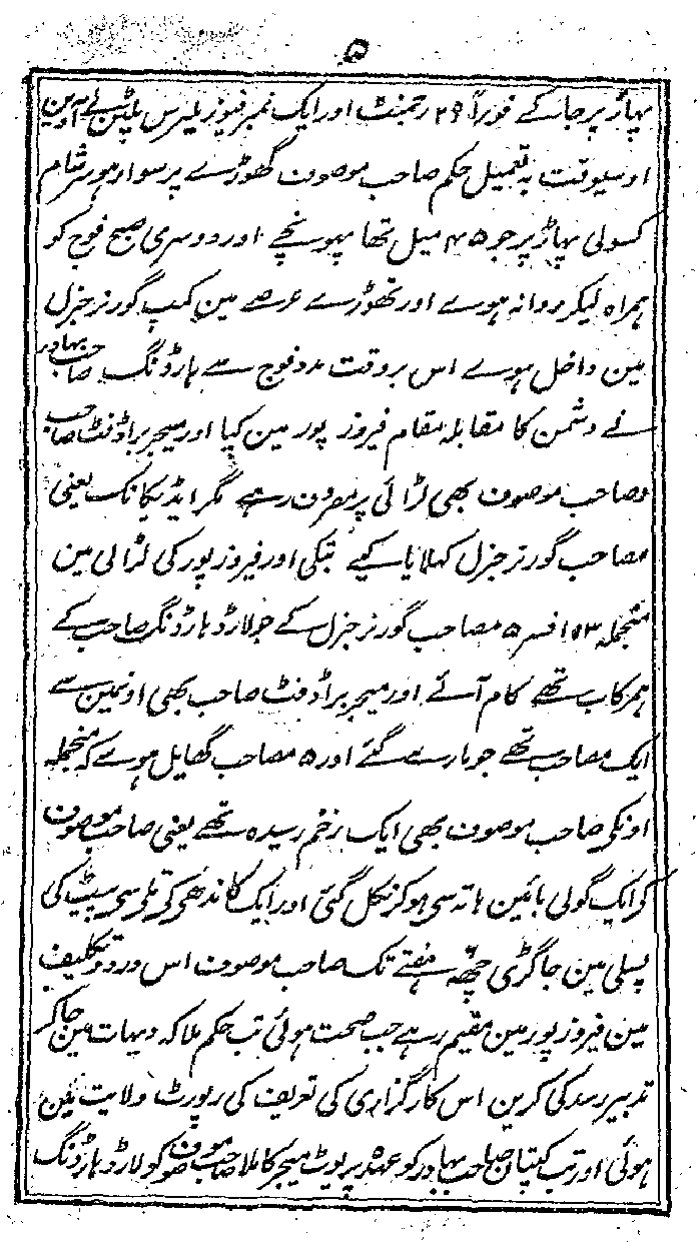 ۵
پہاڑ پر جا کے فوراً ۲۹ رجمنٹ اور ایک نمبر فیوزیلیرس پلٹن لے آوین
اوسیوقت بہ تعمیل حکم صاحب موصوف گھوڑے پر سوار ہو سرشام
کسولی پہاڑ پر جو ۴۵ میل تھا پہونچے اور دوسری صبح فوج کو
ہمراہ لیکر روانہ ہوے اور تھوڑے عرصے مین کمپ گورنر جنرل
مین داخل ہوے اس بروقت مدد فوج سے ہارڈنگ صاحب بہادر
نے دشمن کا مقابلہ مقام فیروز پور مین کیا اور میجر براڈفٹ صاحب
و صاحب موصوف بھی لڑائی پر مصروف رہے مگر ایڈیکانگ یعنی
مصاحب گورنر جنرل کہلایا کیے اور فیروز پور کی لڑائی مین
منجملہ ۱۳ افسر ۵ مصاحب گورنر جنرل کے جو لارڈ ہارڈنگ صاحب کے
ہمرکاب تھے کام آئے اور میجر براڈفٹ صاحب بھی اونہین سے
ایک مصاحب تھے جو مارے گئے اور ۵ مصاحب گھایل ہوے کہ منجملہ
اونکی صاحب موصوف بھی ایک زخم رسیدہ تھے یعنی صاحب موصوف
کر ایک گولی بائین ہاتہ سی ہو کر نکل گئی اور ایک کاندھی کی تلی سی پیٹ کی
پسلی مین جا گڑی چھہ ہفتے تک صاحب موصوف اس درد و تکلیف
مین فیروز پور مین مقیم رہے جب صحت ہوئی تب حکم ملا کہ دیہات مین جا کر
تدبیر رسد کی کرین اس کارگزاری کی تعریف کی رپورٹ ولایت مین
ہوئی اور تب کپتان صاحب بہادر کو عہدہ بریوٹ میجر کا ملا صاحب موصوف کو لارڈ ہارڈنگ